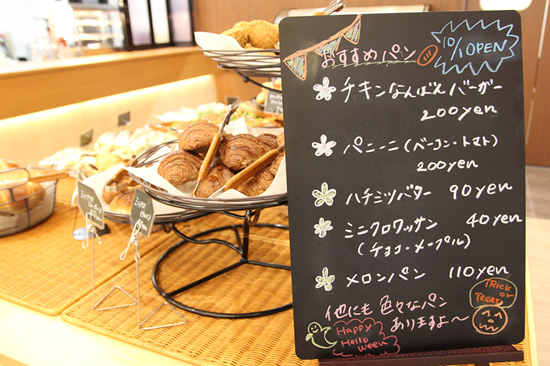 おすすめパン
10/1 OPEN
チキンなんばんバーガー
200yen
パニーニ(ベーコン・トマト)
200yen
ハチミツバター 90yen
ミニクロワッサン 40yen
(チョコ・メープル)
メロンパン 110yen
他にも色々なパン
ありますよ～
TRICK
OR
TREAT
Happy
Hallo
ween